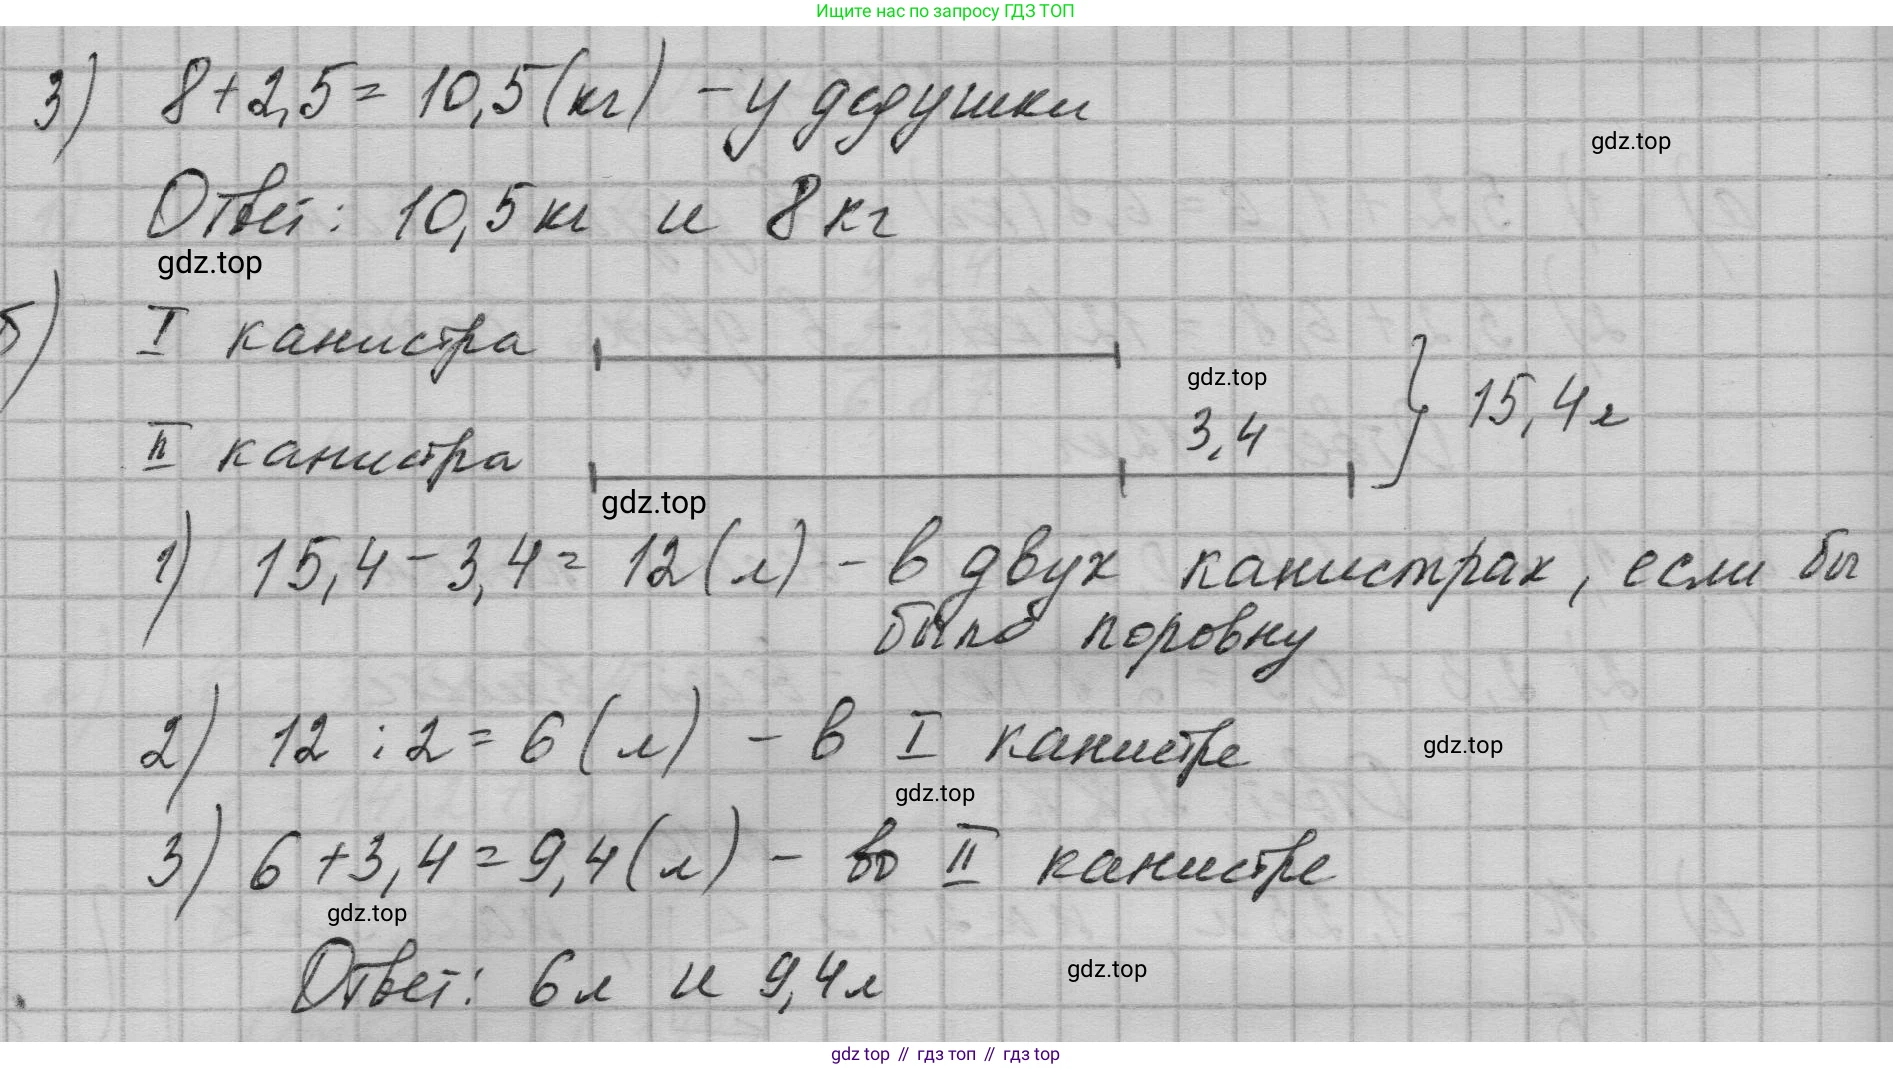 Ищите нас по запросу ГДЗ ТОП
3) 8 + 2,5 = 10,5 (кг) - у дедушки
gdz.top
Ответ: 10,5 кг и 8 кг
gdz.top
б) I канистра
gdz.top
3,4
15,4 л
II канистра
gdz.top
1) 15,4 - 3,4 = 12 (л) - в двух канистрах, если бы
было поровну
2) 12 : 2 = 6 (л) - в I канистре
gdz.top
gdz.top
3) 6 + 3,4 = 9,4 (л) - во II канистре
gdz.top
Ответ: 6 л и 9,4 л
gdz.top
gdz top // гдз топ // гдз top